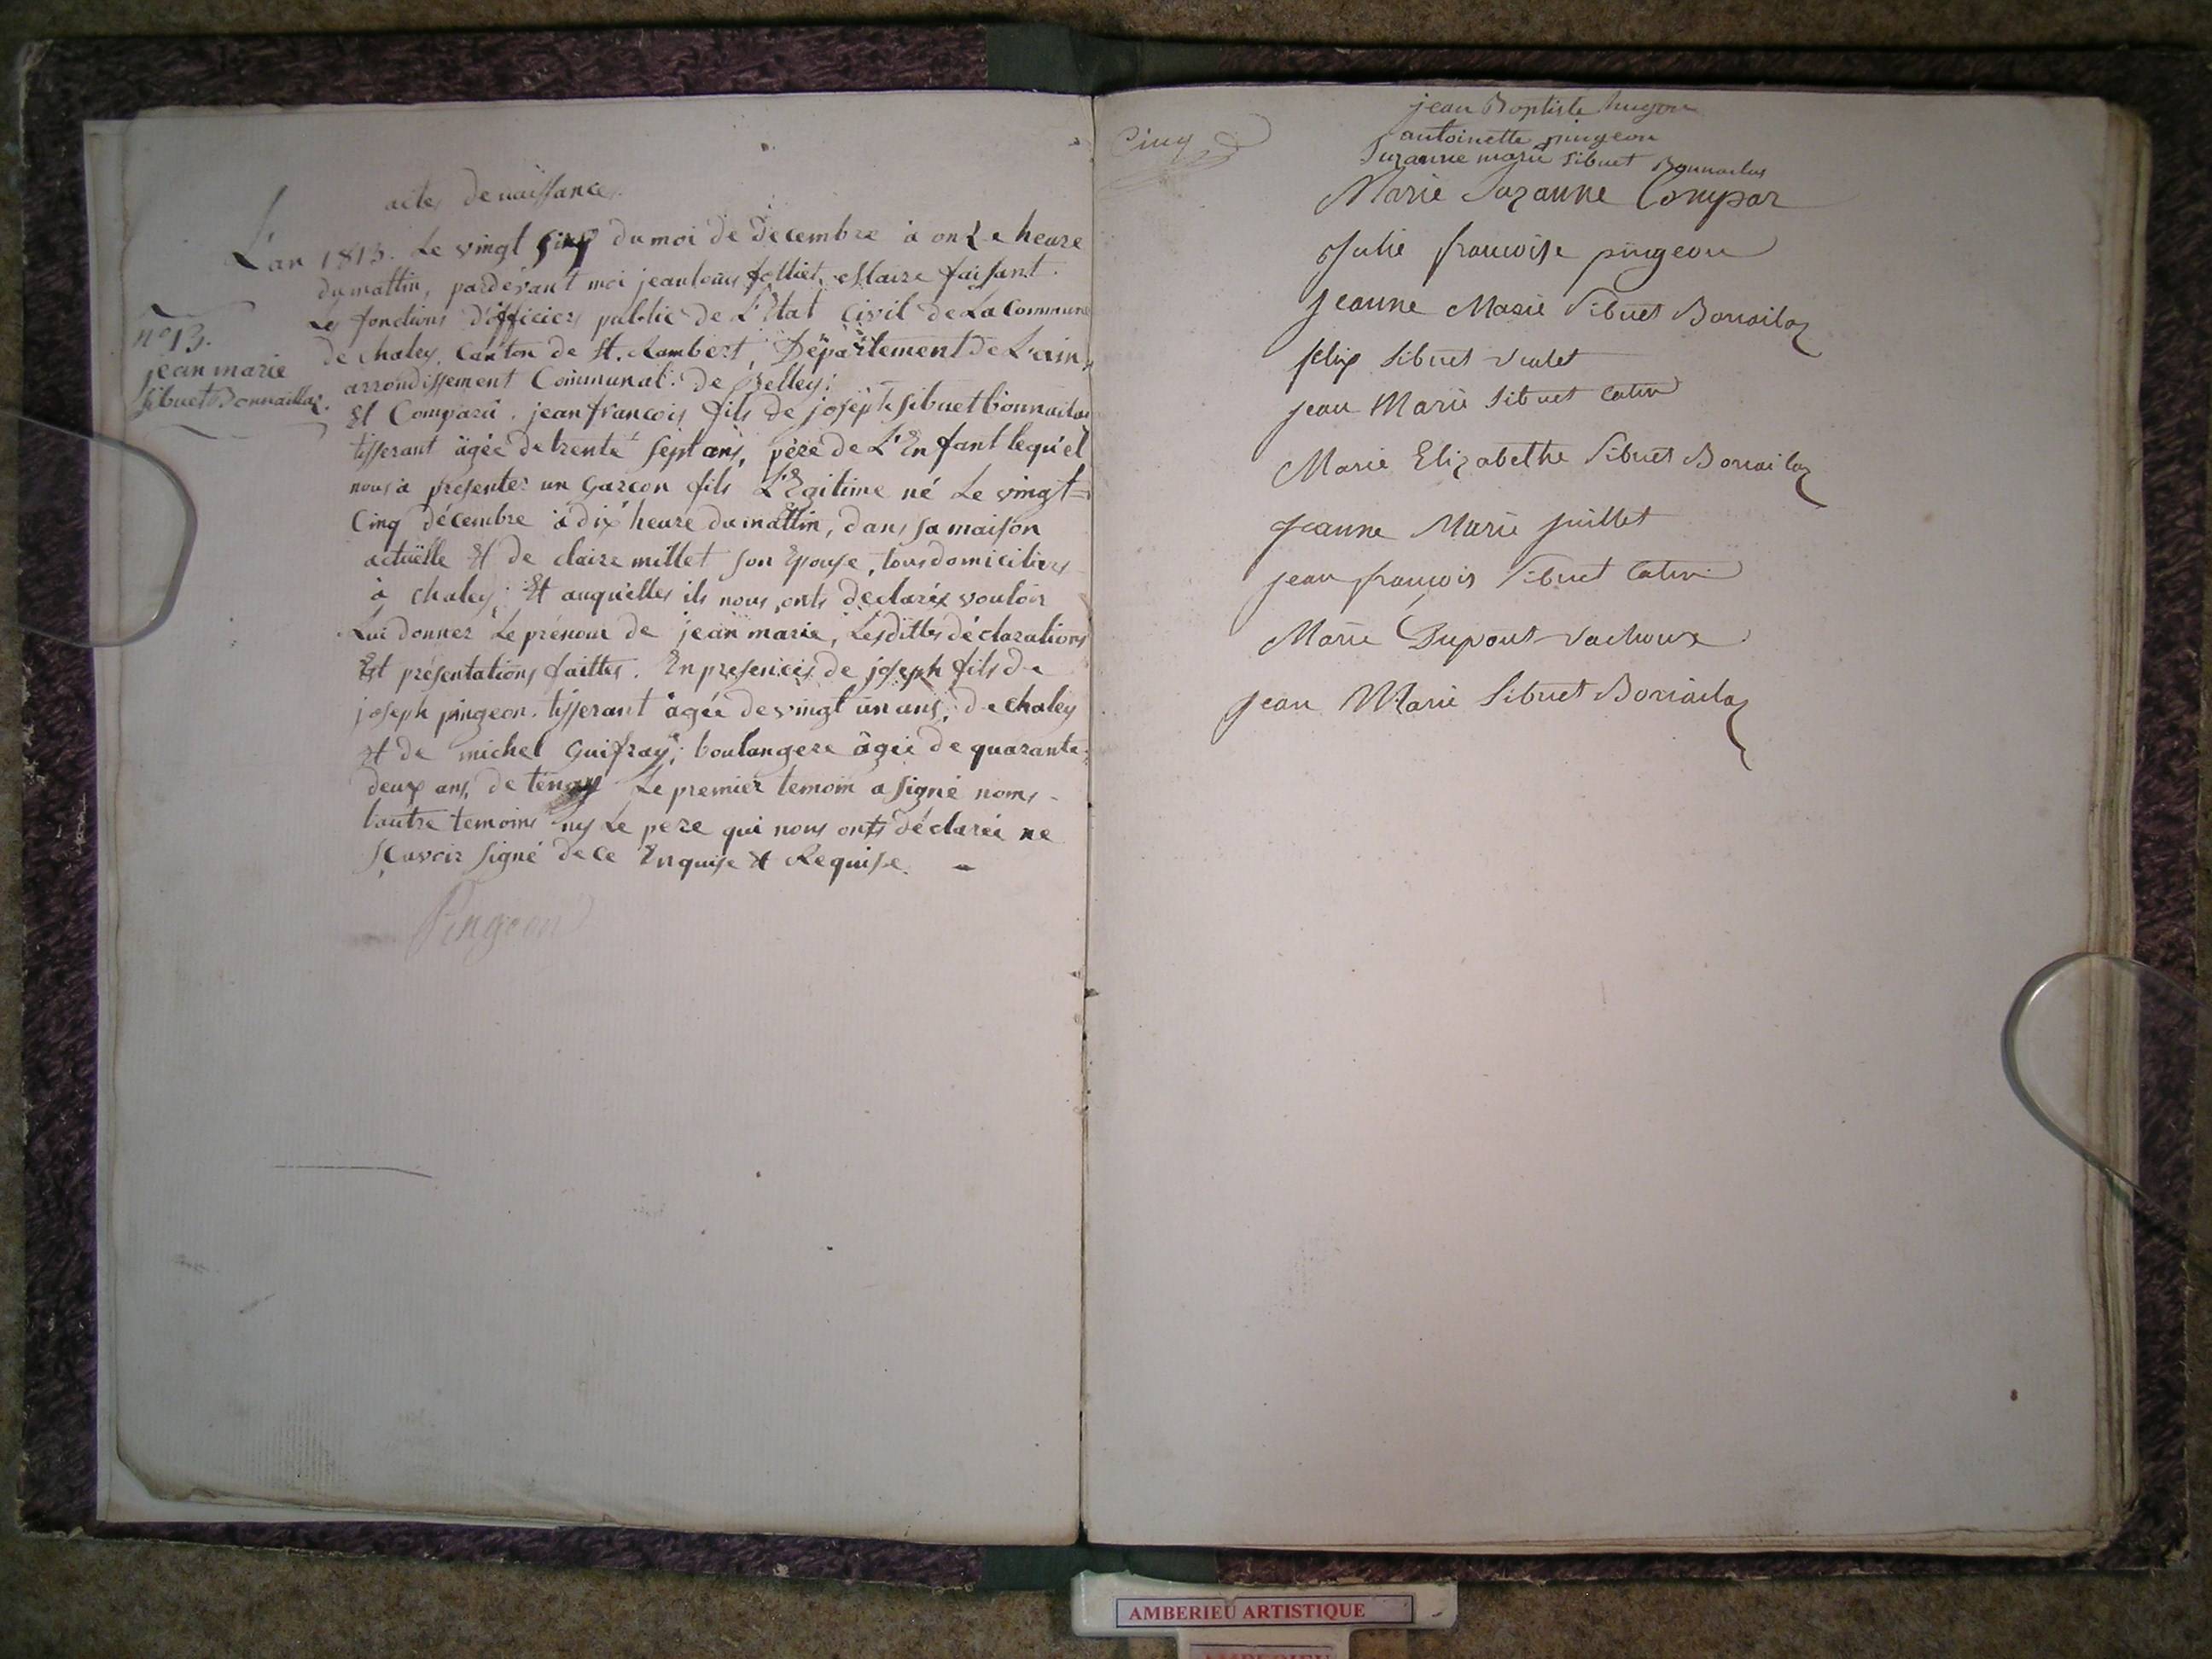 actes de naissance.
L'an 1813. Le vingt cinq du moi de decembre à onze heure
du mattin, pardevant moi jean louis folliet, Maire faisant
Les fonctions d'officiers public de L'Etat Civil de La Commune
de chaley, Canton de St. Rambert, Département De L'ain,
arrondissement Communal de Belley;
Et Comparu. jean francois fils de joseph Sibuet bonnailas
tisserant âgée de trente sept ans, père de L'Enfant lequel
nous a presenter un Garçon fils L'Egitime né Le vingt=
Cinq décembre à dix heure du mattin, dans sa maison
actuëlle Et de claire millet son Epouse, tous domiciliers
à chaley; Et auquelles ils nous onts declarez vouloir
Lui donner Le prénom de jean marie, Lesdittes déclarations
Est présentations faittes. En presences de joseph fils de
joseph pingeon. tisserant âgée de vingt un ans, de chaley
et de michel Guifray; boulangere âgée de quarante
deux ans, de tenay Le premier temoin a signé noms
l'autre temoins ny Le pere qui nous onts déclarée ne
sçavoir signé de ce Enquise et Requise. -
Pingeon
n° 13.
jean marie
Sibuet Bonnaillaz.
Cinq
jean Baptiste
antoinette pingeon
Suzanne marie Sibuet Bonnailas
Marie Suzanne Compar
Julie francoise pingeon
Jeanne Marie Sibuet Bonailaz
felix Sibuet violet
jean Marie Sibuet Catin
Marie Elizabethe Sibuet Bonailaz
Jeanne Marie juillet
jean françois Sibuet Catin
Marie Dupont Vachoux
jean Marie Sibuet Bonailaz
AMBERIEU ARTISTIQUE